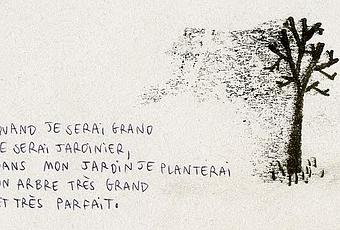 QUAND JE SERAI GRAND
JE SERAI JARDINIER,
DANS MON JARDIN JE PLANTERAI
UN ARBRE TRÈS GRAND
ET TRÈS PARFAIT.